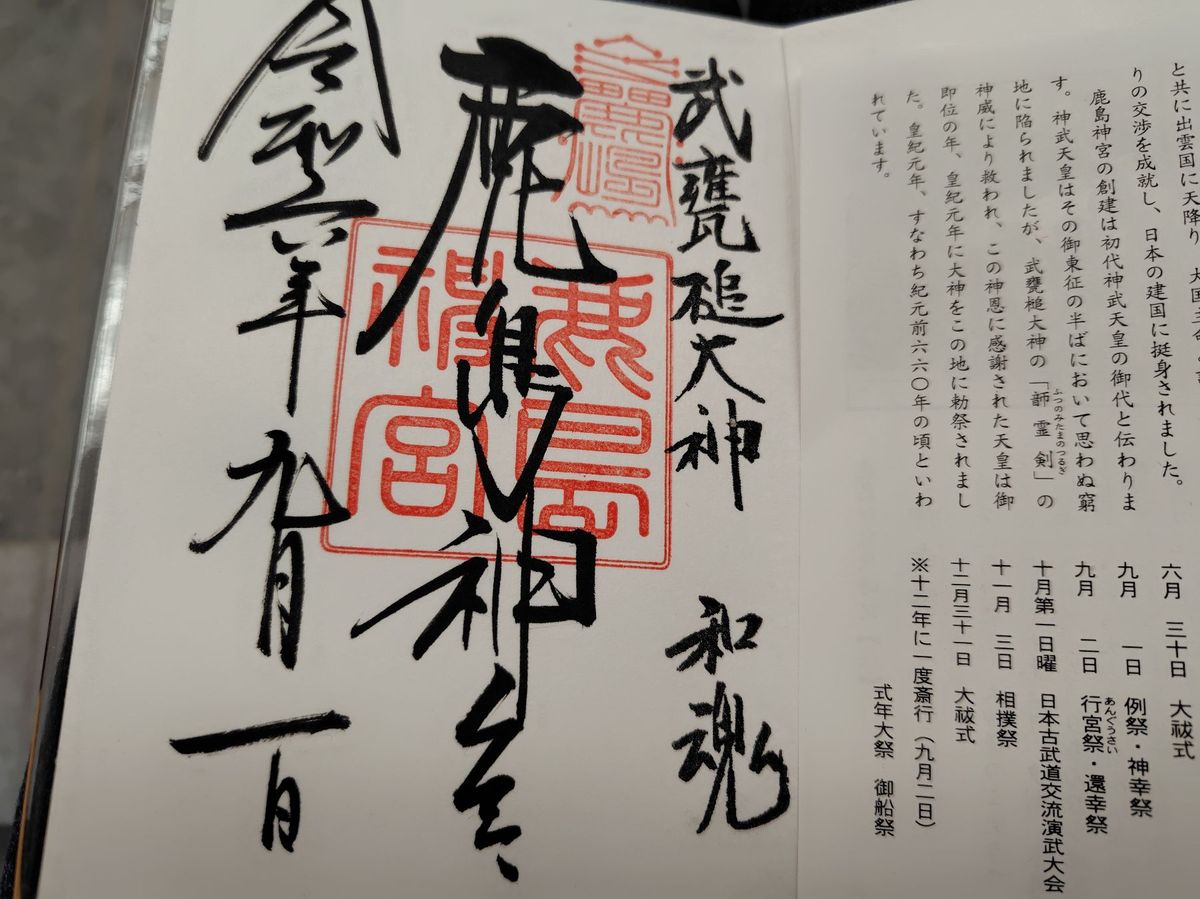 と共に出雲国に天降り
りの交渉を成就し、日本の建国に挺身されました。
鹿島神宮の創建は初代神武天皇の御代と伝わりま
す。神武天皇はその御東征の半ばにおいて思わぬ窮
地に陥られましたが、武甕槌大神の「韴霊剣」の
ふつのみたまのつるぎ
神威により救われ、この神恩に感謝された天皇は御
即位の年、皇紀元年に大神をこの地に勅祭されまし
た。皇紀元年、すなわち紀元前六六〇年の頃といわ
れています。
六月 三十日 大祓式
九月 一日 例祭・神幸祭
九月 二日 行宮祭・還幸祭
あんぐうさい
十月第一日曜 日本古武道交流演武大会
十一月 三日 相撲祭
十二月三十一日 大祓式
※十二年に一度斎行（九月二日）
式年大祭 御船祭
武甕槌大神 和魂
鹿島神宮
鹿島
神宮
令和六年九月一日